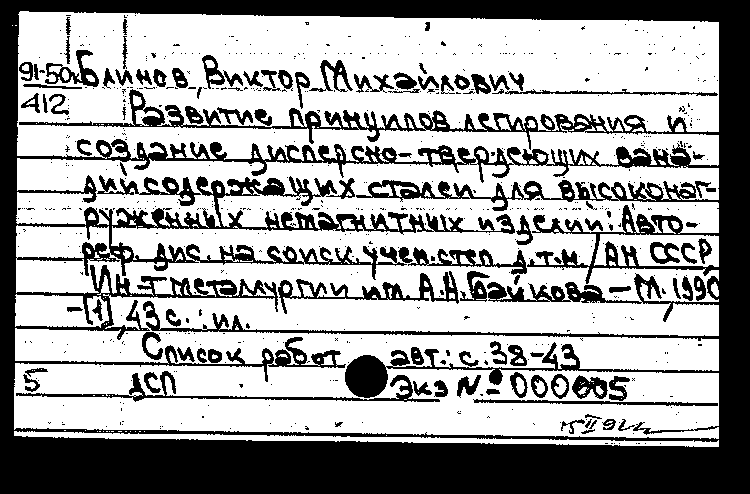 91-50к Блинов, Виктор Михайлович
412 Развитие принципов легирования и
создание дисперсно-твердеющих вана-
дийсодержащих сталей для высоконаг-
руженных немагнитных изделий: Авто-
реф. дис. на соиск. учен. степ. д.т.н. / АН СССР,
Ин-т металлургии им. А.А. Байкова – М., 1990
-[1], 43 с. : ил.
Список работ авт.: с. 38-43
5 ДСП Экз № 000005